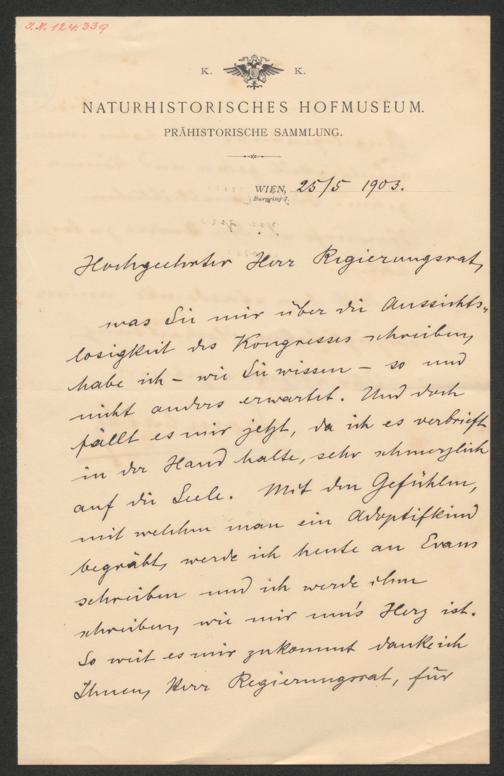 J.N. 124.339
K. K.
NATURHISTORISCHES HOFMUSEUM.
PRÄHISTORISCHE SAMMLUNG.
WIEN, 25/5 1903.
Burgring 7.
Hochgeehrter Herr Regierungsrat,
was Sie mir über die Aussichts-
losigkeit des Kongresses schreiben,
habe ich – wie Sie wissen – so und
nicht anders erwartet. Und doch
fällt es mir jetzt, da ich es verbrieft
in der Hand halte, sehr schmerzlich
auf die Seele. Mit den Gefühlen,
mit welchen man ein Adoptifkind
begräbt, werde ich heute an Evans
schreiben und ich werde ihm
schreiben, wie mir um's Herz ist.
So weit es mir zukommt danke ich
Ihnen, Herr Regierungsrat, für